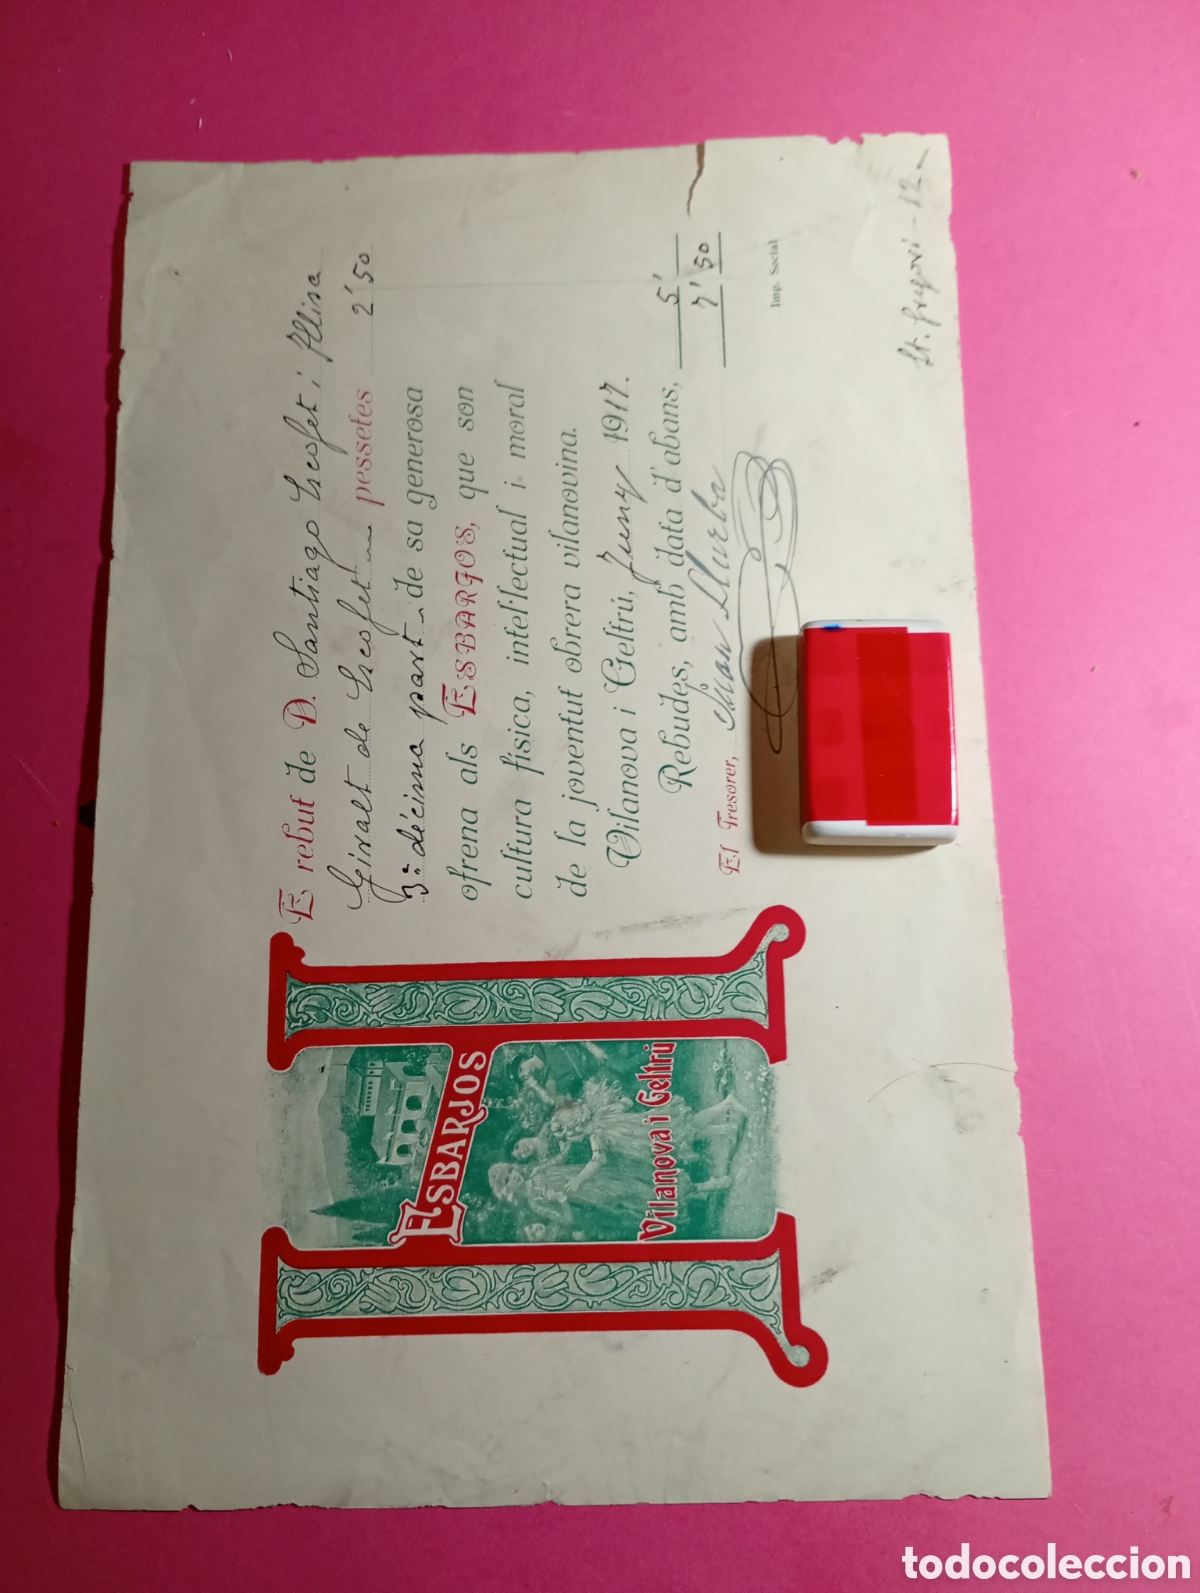 E rebut de D. Santiago Escofet i Allisa
Giralt de Escofet pessetes 2'50
3ª dècima part de sa generosa
ofrena als ESBARJOS, que son
cultura física, intel·lectual i moral
de la joventut obrera vilanovina.
Vilanova i Geltrú, Juny 1917.
Rebudes, amb data d'abans, 5'
7'50
El Tresorer, Juan Llurba
Imp. Social
St. Gregori - 12
ESBARJOS
Vilanova i Geltrú
todocoleccion